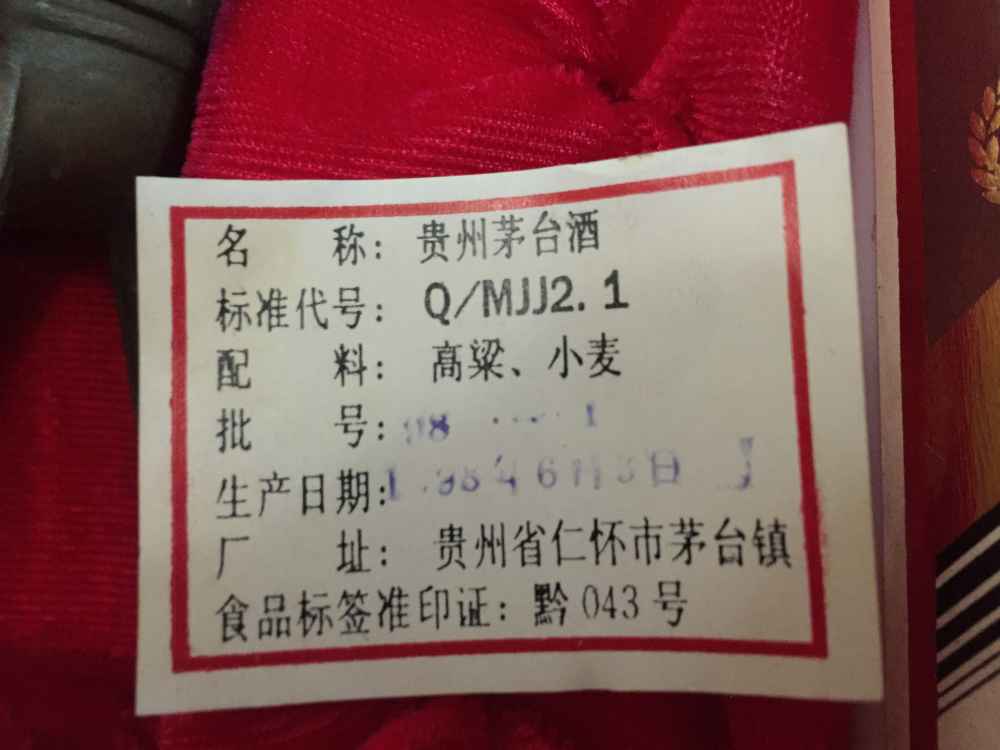 名 称: 贵州茅台酒
标准代号: Q/MJJ2.1
配 料: 高粱、小麦
批 号: 98
生产日期: 6月 日
厂 址: 贵州省仁怀市茅台镇
食品标签准印证: 黔 043 号